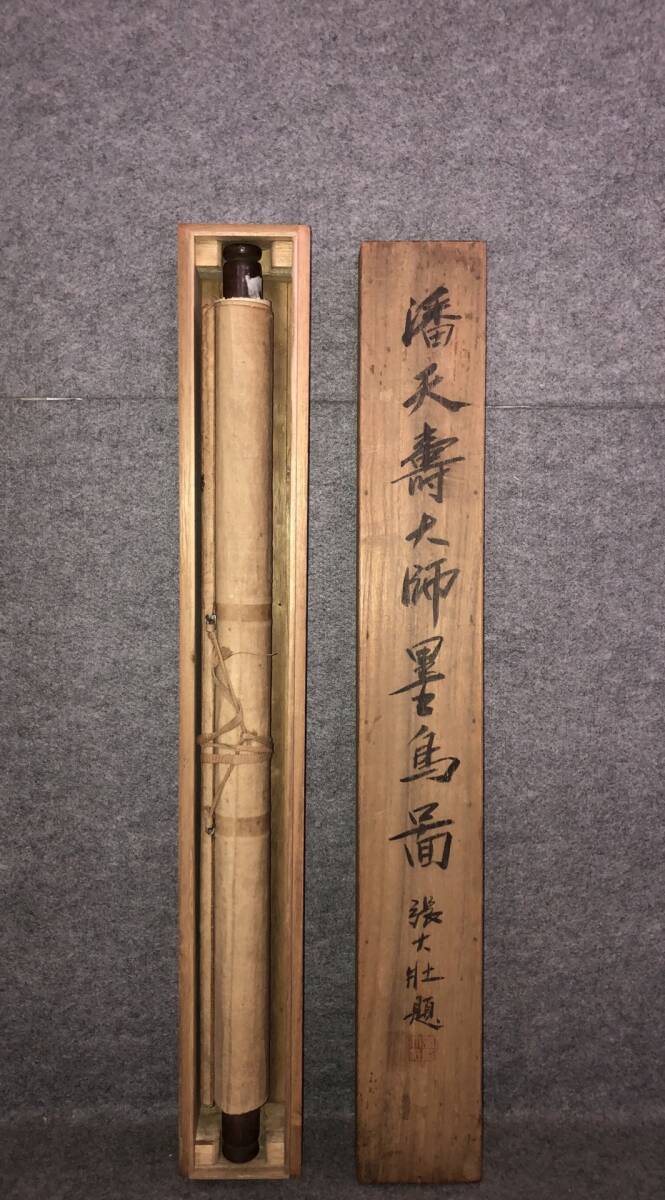 潘天壽大師墨鳥啚
張大壯題